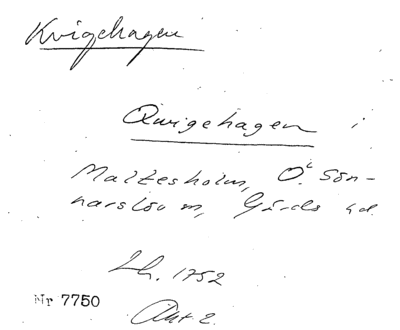 Kvigehagen
Qvigehagen i
Maltesholm, Ö. Sön-
narslöv sn, Gärds hd.
Lh. 1752
Nr 7750
Akt 2.